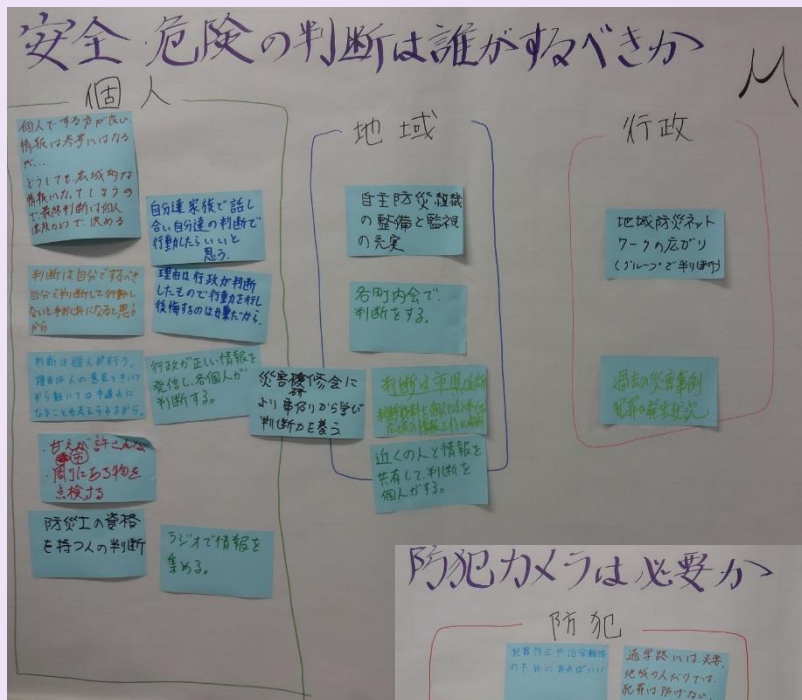 安全 危険の判断は誰がするべきか
個人
個人でする方が良い
情報は参考にはなる
が...
どうしても、広域的な
情報になってしまうの
で、最終判断は個人
決める
自分達家族で話し
合い自分達の判断で
行動したらいいと
思う。
判断は自分でするべき
自分で判断して行動し
ないと手おくれになると思う
から
理由は行政が判断
したもので行動を移し
後悔するのは
だから。
判断は個人が行う。
理由は人の意見をきいて
から動いては手遅れに
なることも考えられるから。
行政が正しい情報を
発信し、各個人が
判断する。
災害
研修会に
より事例から学び
判断力を養う
周りにある物を
点検する
防災士の資格
を持つ人の判断
ラジオで情報を
集める。
地域
自主防災組織
の整備と監視
の充実
各町内会で、
判断をする。
判断は市県
近くの人と情報を
共有して、判断を
個人がする。
行政
地域防災ネット
ワークの広がり
(グループで
過去の災害事例
犯罪の発生状況
防犯カメラは必要か
防犯
犯罪防止や治安維持
のためにあればいい
通学路には必要、
地域の人だけでは
犯罪は防げない。